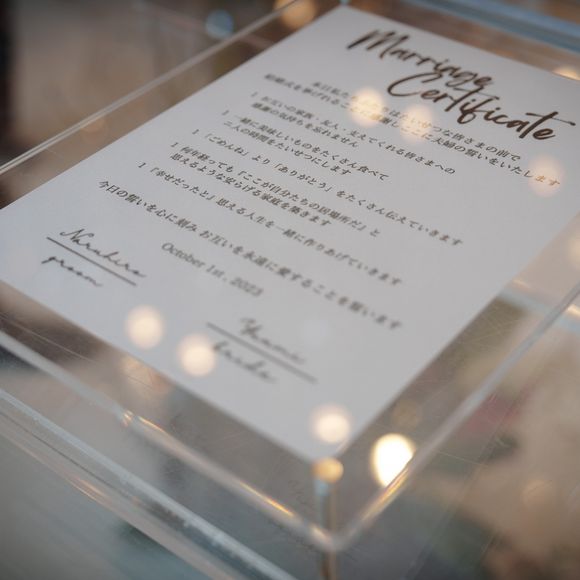 Marriage
Certificate
本日私たちは たいせつな皆さまの前で
結婚式を挙げれることに感謝し ここに夫婦の誓いをいたします
1 お互いの家族、友人、支えてくれる皆さまへの
感謝の気持ちを忘れません
1 一緒に美味しいものをたくさん食べて
二人の時間をたいせつにします
1 「ごめんね」より「ありがとう」をたくさん伝えていきます
1 何年経っても「ここが自分たちの居場所だ」と
思えるような安らげる家庭を築きます
1 「幸せだった」と思える人生を一緒に作りあげていきます
今日の誓いを心に刻み お互いを永遠に愛することを誓います
October 1st, 2023
Narahiro
groom
bride